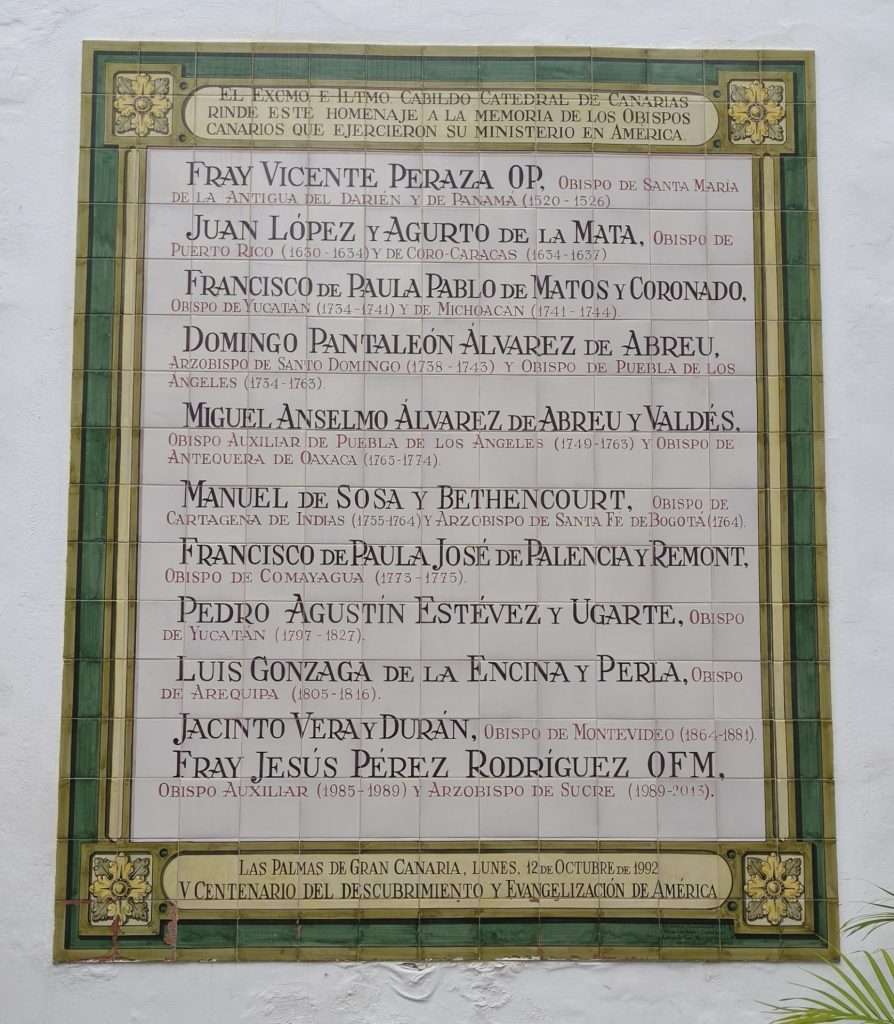 EL EXCMO. E ILTMO. CABILDO CATEDRAL DE CANARIAS
RINDE ESTE HOMENAJE A LA MEMORIA DE LOS OBISPOS
CANARIOS QUE EJERCIERON SU MINISTERIO EN AMÉRICA.
FRAY VICENTE PERAZA OP, OBISPO DE SANTA MARÍA
DE LA ANTIGUA DEL DARIÉN Y DE PANAMÁ (1520-1526)
JUAN LÓPEZ Y AGURTO DE LA MATA, OBISPO DE
PUERTO RICO (1630-1634) Y DE CORO-CARACAS (1634-1637)
FRANCISCO DE PAULA PABLO DE MATOS Y CORONADO,
OBISPO DE YUCATÁN (1734-1741) Y DE MICHOACÁN (1741-1744).
DOMINGO PANTALEÓN ÁLVAREZ DE ABREU,
ARZOBISPO DE SANTO DOMINGO (1738-1743) Y OBISPO DE PUEBLA DE LOS
ÁNGELES (1734-1763).
MIGUEL ANSELMO ÁLVAREZ DE ABREU Y VALDÉS,
OBISPO AUXILIAR DE PUEBLA DE LOS ÁNGELES (1749-1763) Y OBISPO DE
ANTEQUERA DE OAXACA (1765-1774).
MANUEL DE SOSA Y BETHENCOURT, OBISPO DE
CARTAGENA DE INDIAS (1755-1764) Y ARZOBISPO DE SANTA FE DE BOGOTÁ (1764).
FRANCISCO DE PAULA JOSÉ DE PALENCIA Y REMONT,
OBISPO DE COMAYAGUA (1773-1775).
PEDRO AGUSTÍN ESTÉVEZ Y UGARTE, OBISPO
DE YUCATÁN (1797-1827).
LUIS GONZAGA DE LA ENCINA Y PERLA, OBISPO
DE AREQUIPA (1805-1816).
JACINTO VERA Y DURÁN, OBISPO DE MONTEVIDEO (1864-1881).
FRAY JESÚS PÉREZ RODRÍGUEZ OFM,
OBISPO AUXILIAR (1985-1989) Y ARZOBISPO DE SUCRE (1989-2013).
LAS PALMAS DE GRAN CANARIA, LUNES, 12 DE OCTUBRE DE 1992
V CENTENARIO DEL DESCUBRIMIENTO Y EVANGELIZACIÓN DE AMÉRICA